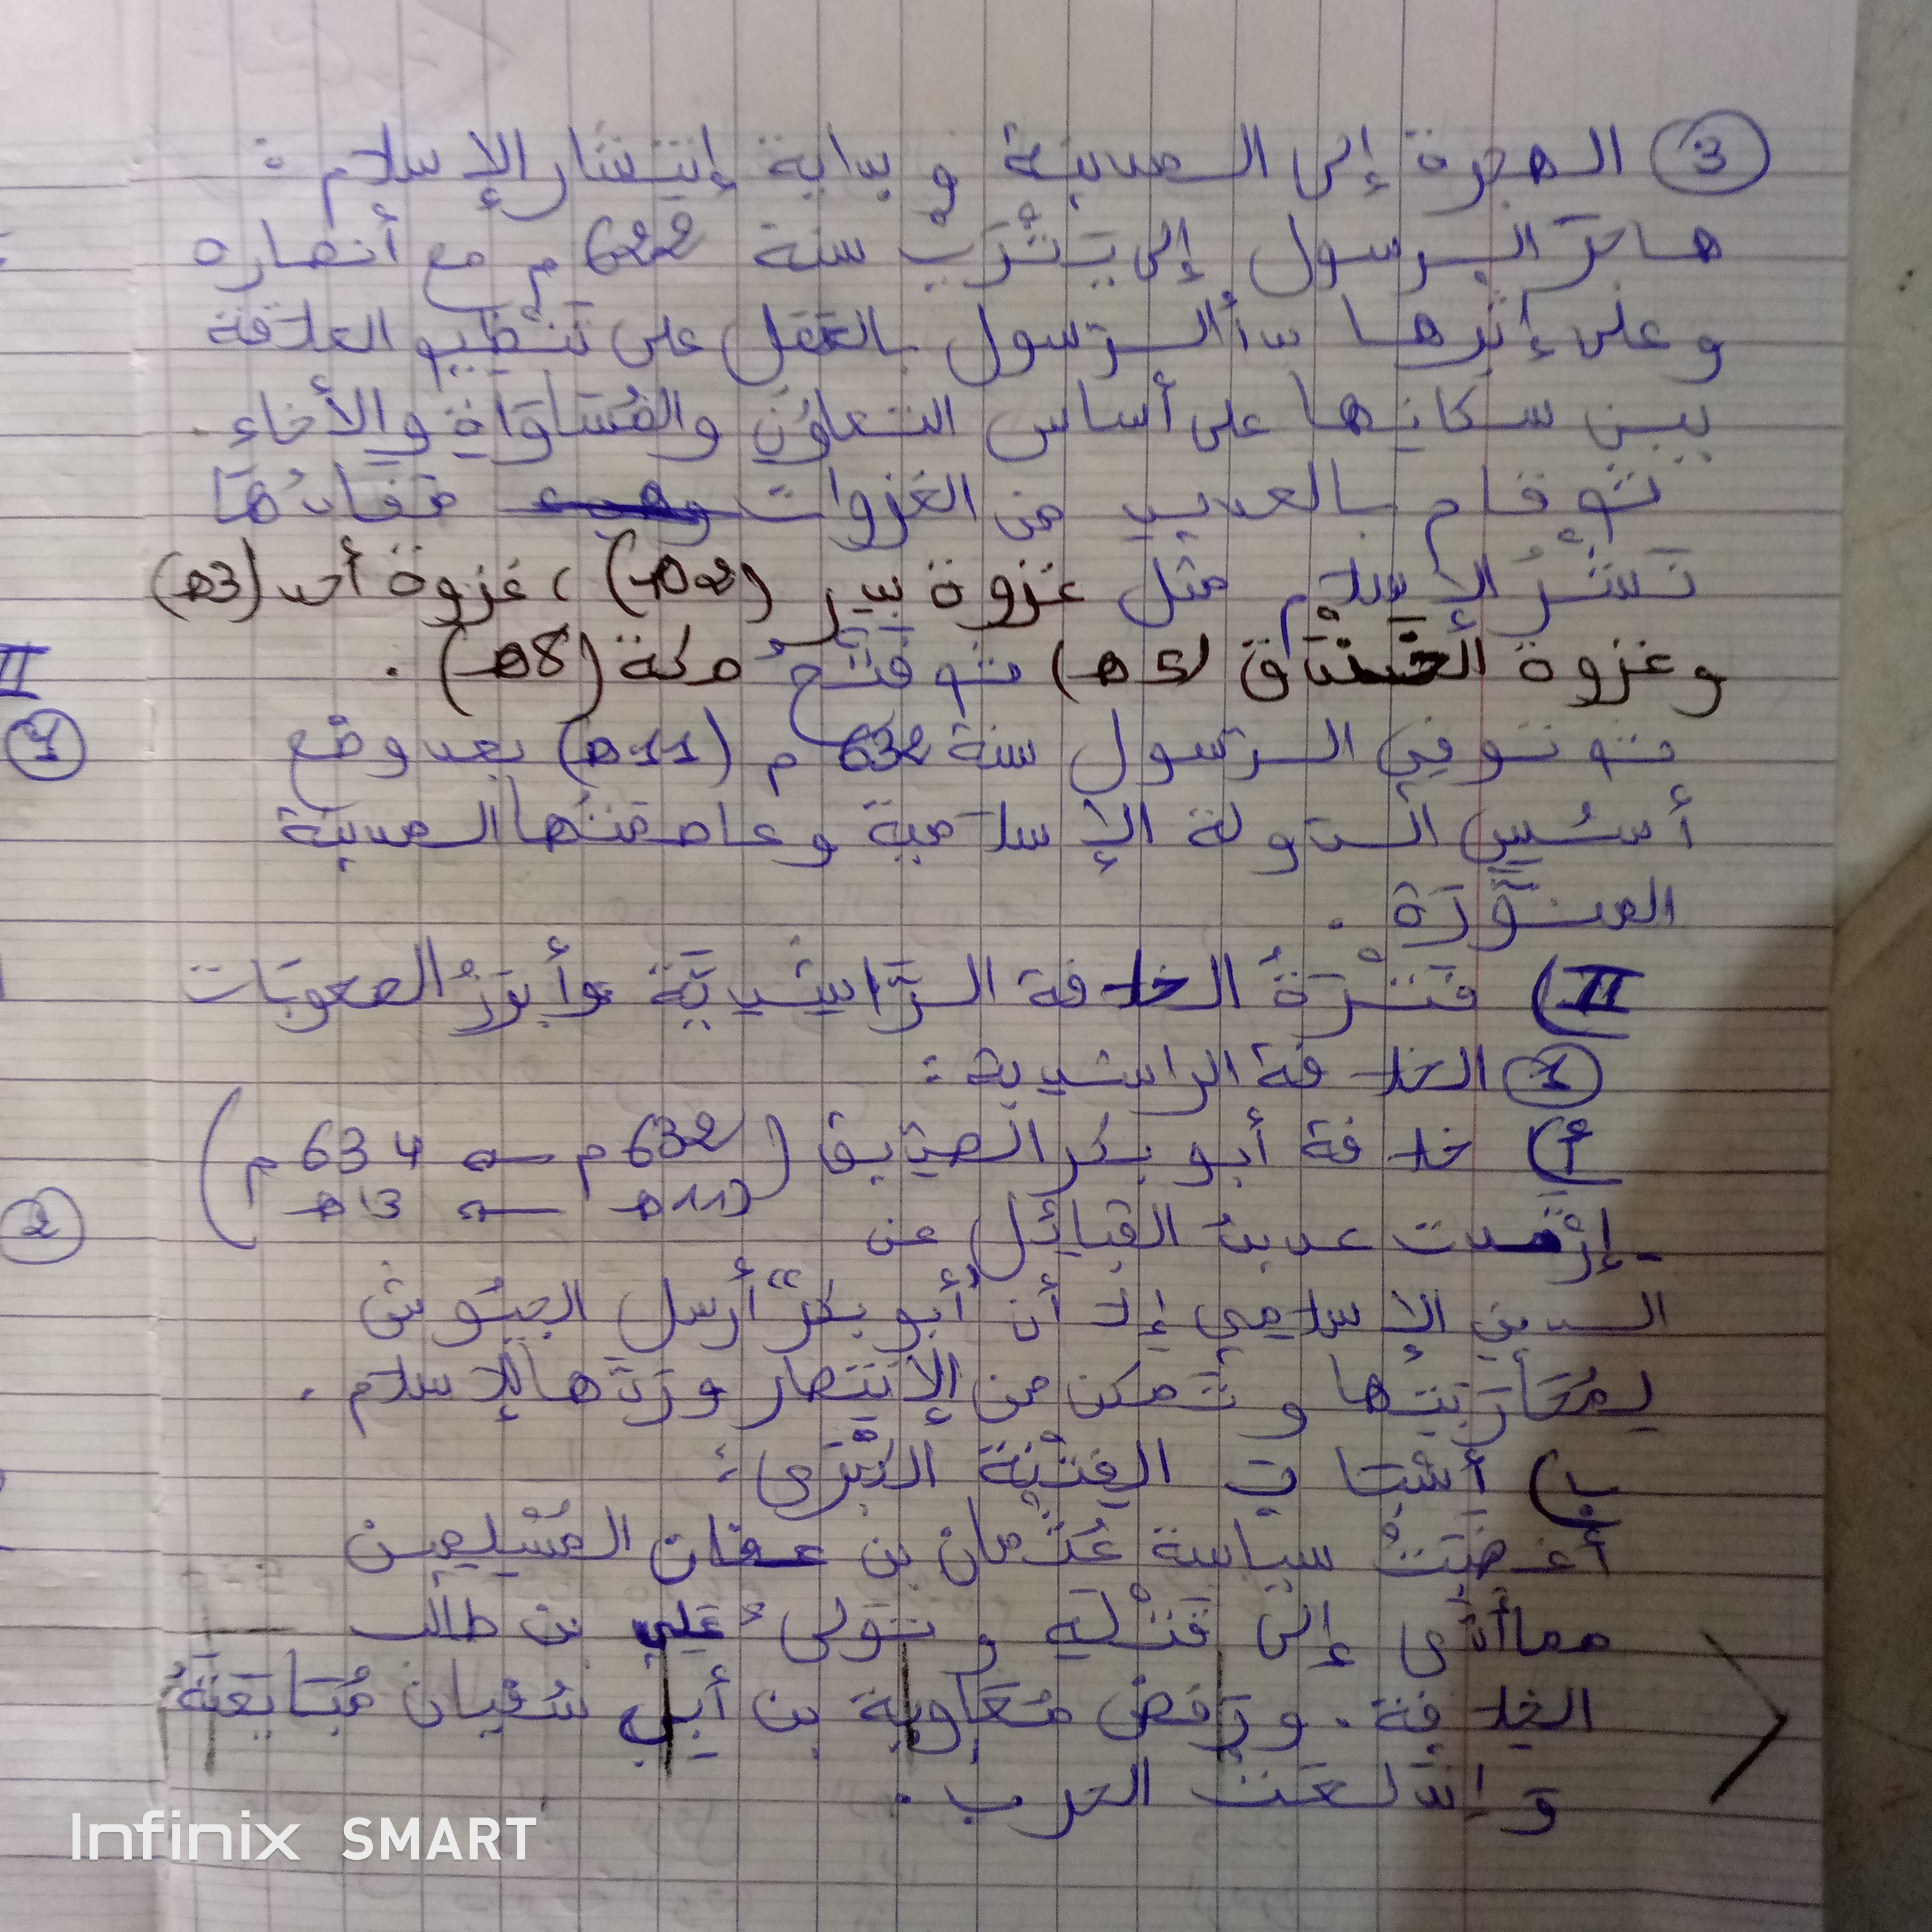 3 الهجرة إلى المدينة و بداية إنتشار الإسلام :
هاجَرَ الرسول إلى يَثْرَبْ سنة 622 م مع أنصاره
وعلى إثرها بدأ الرسول بالعَمَل على تَنْظيم العلاقة
بين سكانها على أساس التعاوُنِ والمُسَاوَاةِ والأخاء .
ثم قام بالعديد من الغزوات مَفَادُهَا
نَشْرُ الإسلام مثل غزوة بدر (2ه) ، غزوة أحد (3ه)
وغزوة الخَنْدَاق (5 ه) ثم فَتْحُ مكة (8ه) .
ثم توفي الرسول سنة 632 م (11ه) بعد وضْع
أسُسِ الدَّولة الإسلامية وعاصمَتُها المدينة
المنوَّرَة .
II) فَتْرَةُ الخلافة الرَّاشِديَّة وأبرَزُ الصعوبَات
1 الخلافة الراشدية :
أ) خلافة أبو بكر الصدِّيق (632 م ← 634 م
11ه ← 13ه)
- إرْتَدت عديدُ القبائل عن
الدين الإسلامي إلا أن "أبو بكر" أرسل الجيُوش
لِمُحَارَبتِها و تَمكن من الإنْتِصار وردَّها للإسلام .
ب) أسْبَاب الفِتْنِة الكُبْرَى :
أغضَبَتْ سياسة عُثْمان بن عفان المُسْلِمين
مما أدَّى إلى قَتْلِهِ و تَولى عَلي بن طالب
الخلافة . و رَفضَ مُعَاوية بن أبي سُفيان مُبَايَعَتَهُ
وَ اندَلعَتْ الحرب .
II
1
2
Infinix SMART